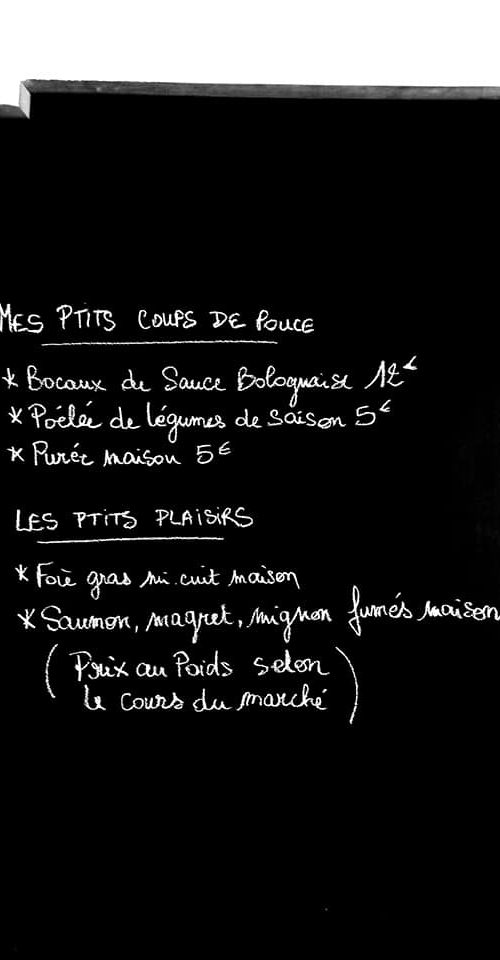 MES PTITS COUPS DE POUCE
* Bocaux de Sauce Bolognaise 12€
* Poêlée de légumes de saison 5€
* Purée maison 5€
LES PTITS PLAISIRS
* Foie gras mi.cuit maison
* Saumon, magret, mignon fumés maison
( Prix au Poids selon
le cours du marché )